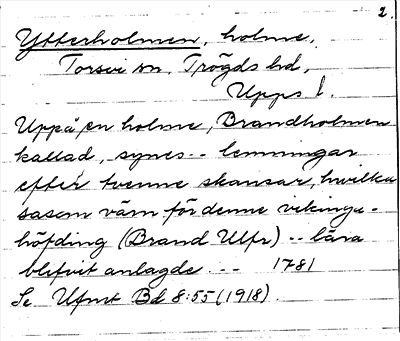 2.
Ytterholmen, holme,
Torsvi sn, Trögds hd,
Upps l.
Uppå en holme, Brandholmen
kallad, synes -- lemningar
efter tvenne skansar, hvilka
såsom värn för denne vikinga-
höfding (Brand Ulfr) -- lära
blifvit anlagde. -- 1781
Se Ufmt Bd 8:55 (1918).